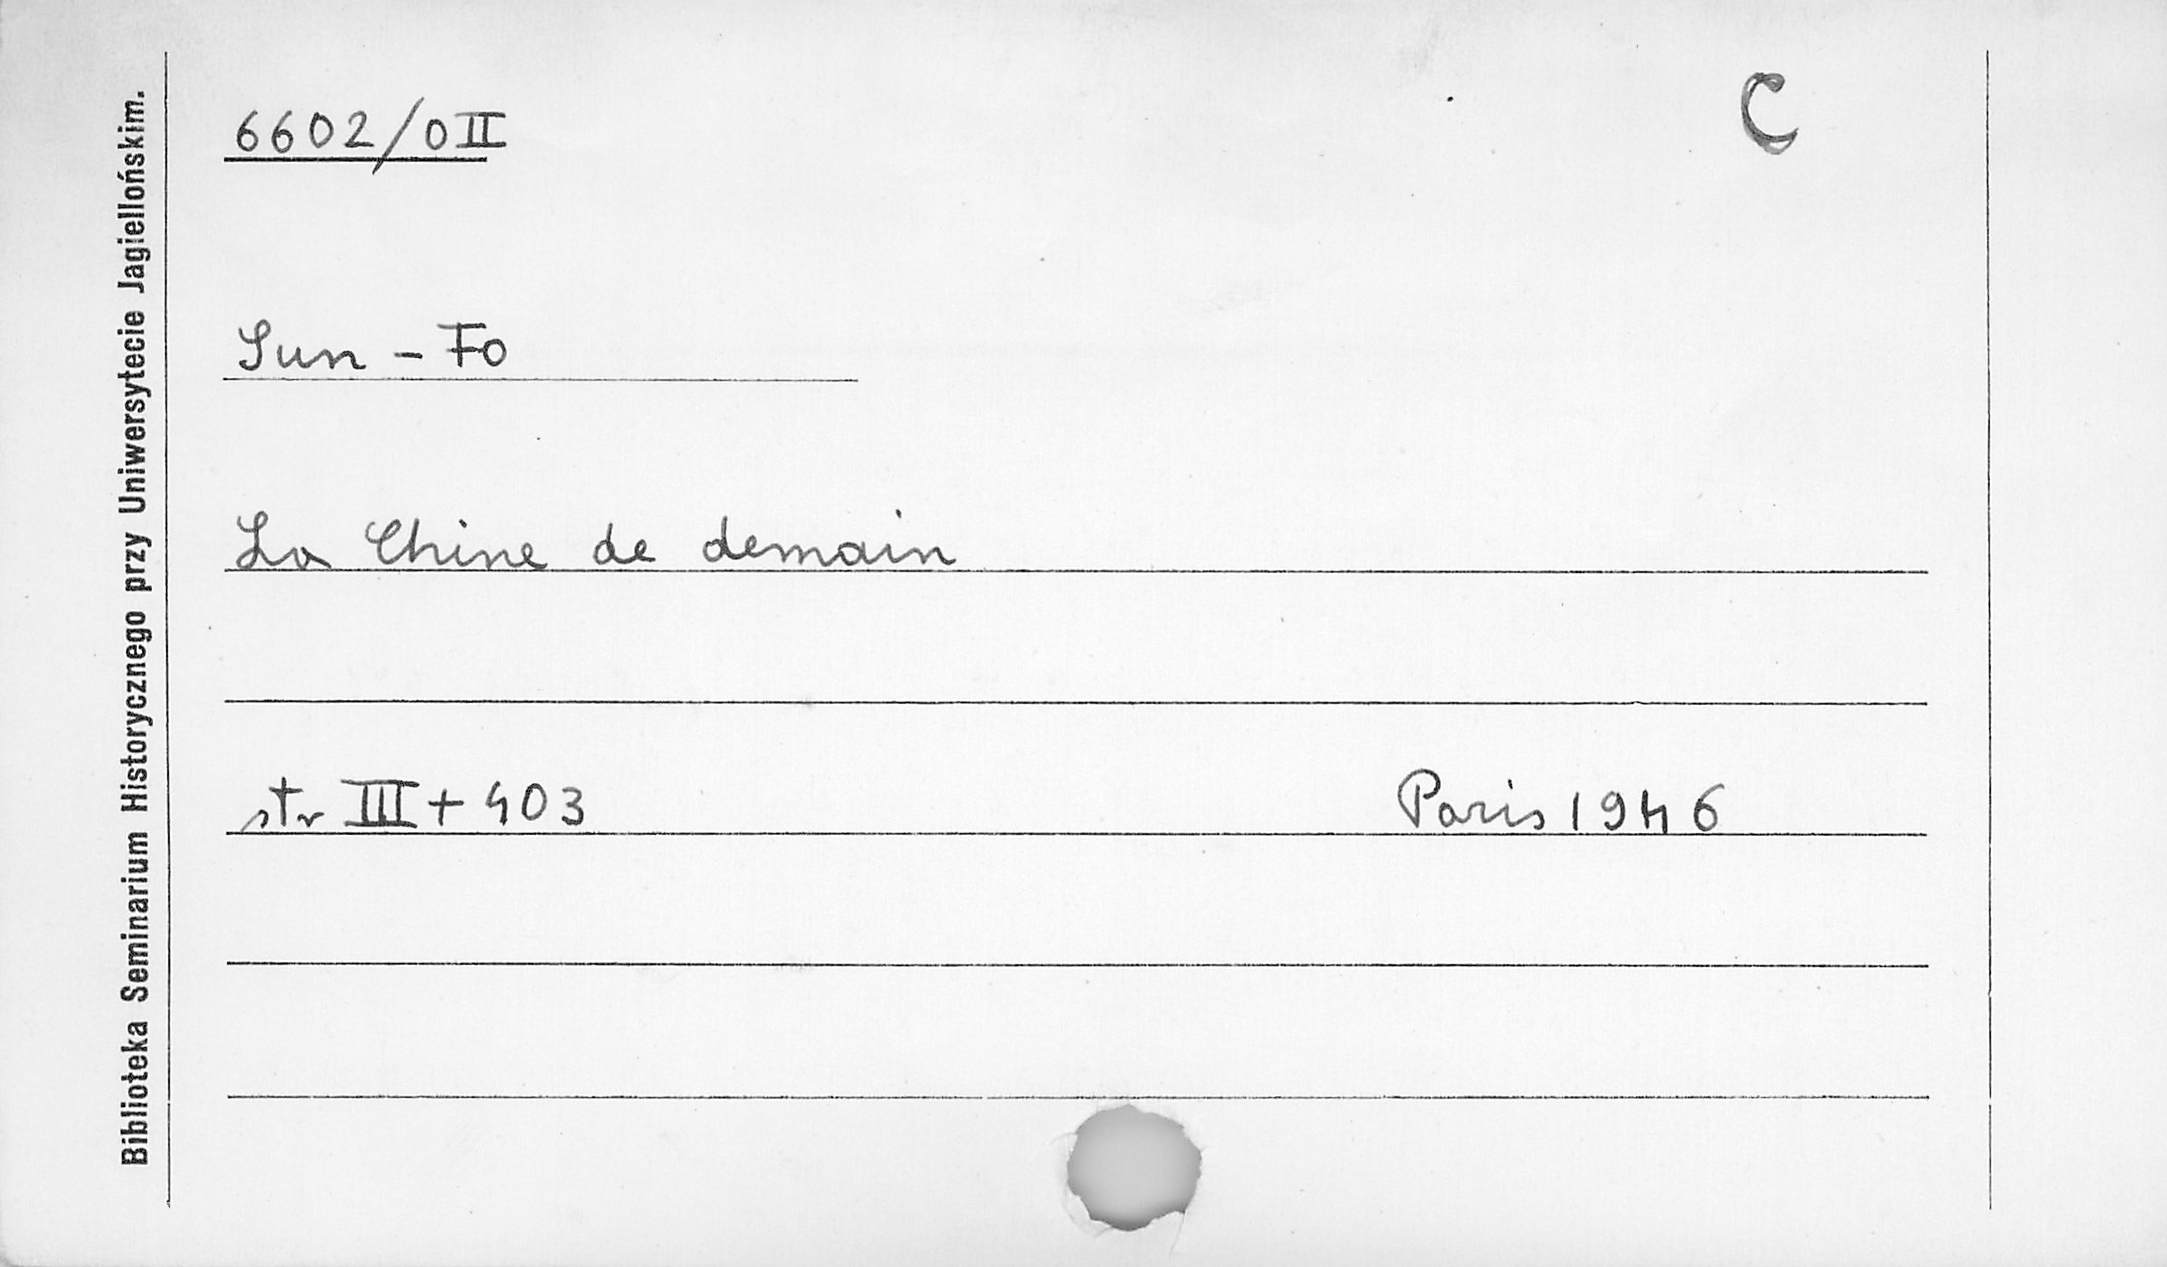 6602/0II
C
Sun – Fo
La Chine de demain
str III + 403
Paris 1946
Biblioteka Seminarium Historycznego przy Uniwersytecie Jagiellońskim.